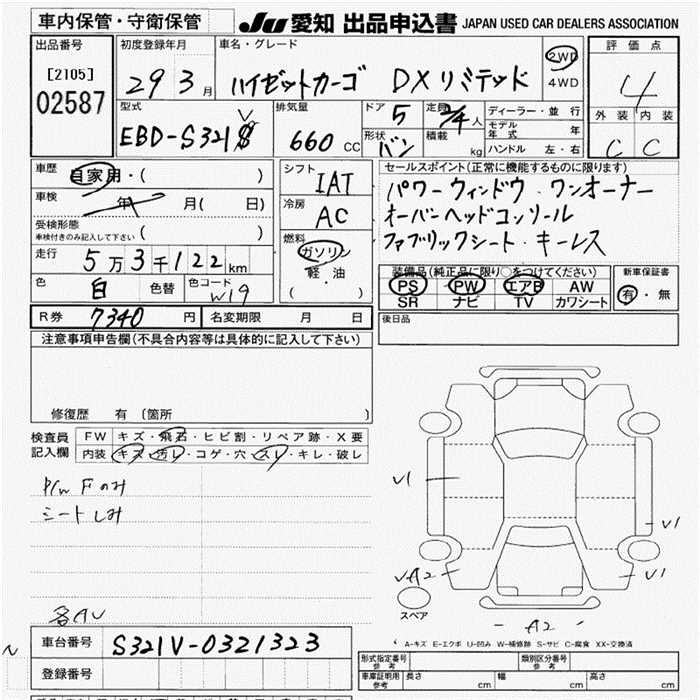 車内保管・守衛保管
JU 愛知 出品申込書 JAPAN USED CAR DEALERS ASSOCIATION
出品番号
[2105]
02587
初度登録年月
29 3 月
車名・グレード
ハイゼットカーゴ DXリミテッド
2WD
4WD
評価点
4
外装 内装
C C
型式
EBD-S321V
排気量
660 CC
ドア 5
形状 バン
定員 2/4 人
積載 kg
ディーラー・並行
モデル年式 年
ハンドル 左・右
車歴 自家用・( )
車検 年 月( 日)
受検形態
車検付きのみ記入して下さい ( )
走行 5万3千122km
色 白 色替 色コード W19
シフト IAT
冷房 AC
燃料
ガソリン
軽・油
( )
セールスポイント(正常に機能するものに限ります)
パワーウィンドウ・ワンオーナー
オーバーヘッドコンソール
ファブリックシート・キーレス
装備品(純正品に限り○をつけてください)
PS PW エアB AW
SR ナビ TV カワシート
新車保証書
有・無
R券 7340 円 名変期限 月 日
後日品
注意事項申告欄(不具合内容等は具体的に記入して下さい)
修復歴 有〔箇所 〕
検査員記入欄
FW キズ・飛石・ヒビ割・リペア跡・X要
内装 キズ・汚レ・コゲ・穴・スレ・キレ・破レ
P/W Fのみ
シートしみ
各AU
V1
V1
VA2
V1
A2
スペア
A-キズ E-エクボ U-凹み W-補修跡 S-サビ C-腐食 XX-交換済
車台番号 S321V-0321323
登録番号
形式指定番号 参考
類別区分番号 参考
車庫証明用 参考 長さ cm 幅 cm 高さ cm